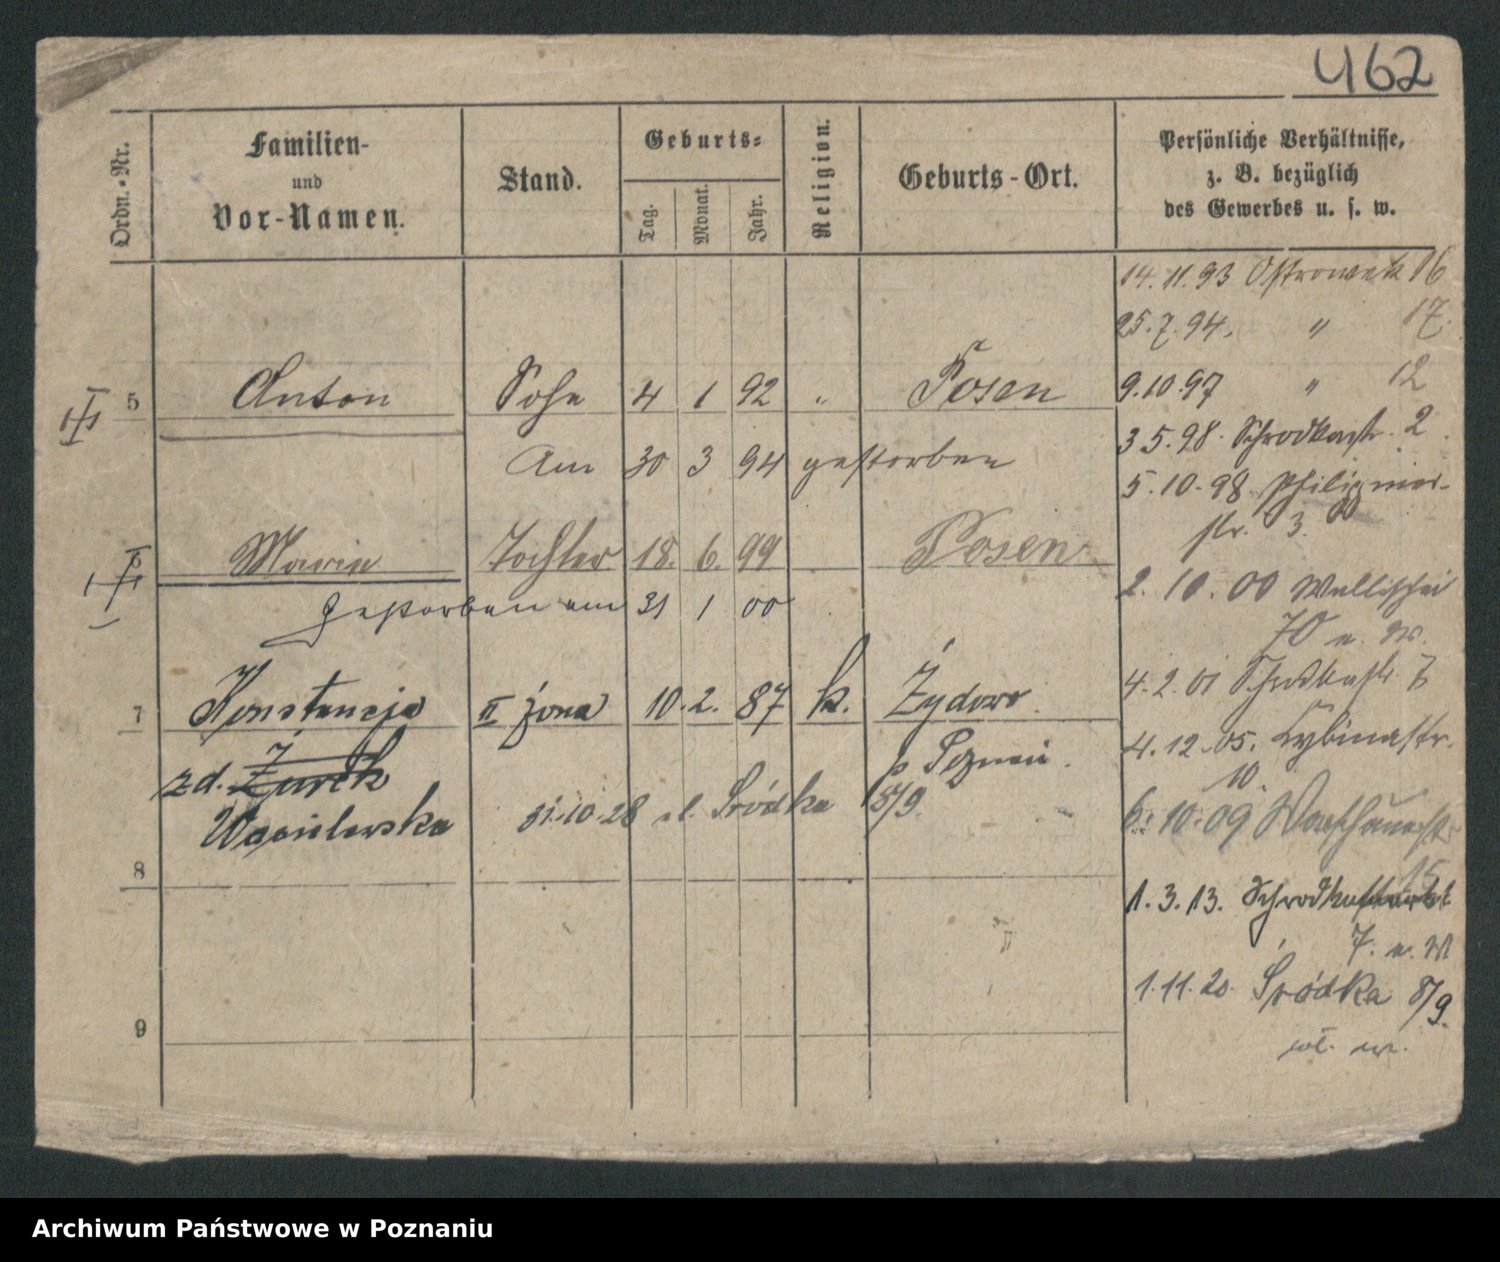 462
Ordn.-Nr.
Familien-
und
Vor-Namen.
Stand.
Geburts-
Tag.
Monat.
Jahr.
Religion.
Geburts-Ort.
Persönliche Verhältnisse,
z. B. bezüglich
des Gewerbes u. s. w.
14.11.93 Ostrowek 16
25.7.94. " 17.
5 Anton Sohn 4 1 92 " Posen
9.10.97 " 12
Am 30 3 94 gestorben
3 5.98. Schrodkastr. 2
5.10.98 Philippiner-
str. 3.
6 Marie Tochter 18. 6. 99 Posen
2. 10. 00 Wallischei
70 u. W.
gestorben am 31 1 00
4.2.01 Schrodkastr. 7
7 Konstancja II żona 10. 2. 87 k. Żydowo
4.12.05. Cybinastr.
10.
zd. Żurek
p Poznań.
Wasielewska
31.10.28 ul. Śródka 8/9.
6.10.09 Warschauerst
15
8
1.3.13. Schrodkamarkt
7. u. W
1.11.20. Śródka 8/9.
9
Archiwum Państwowe w Poznaniu